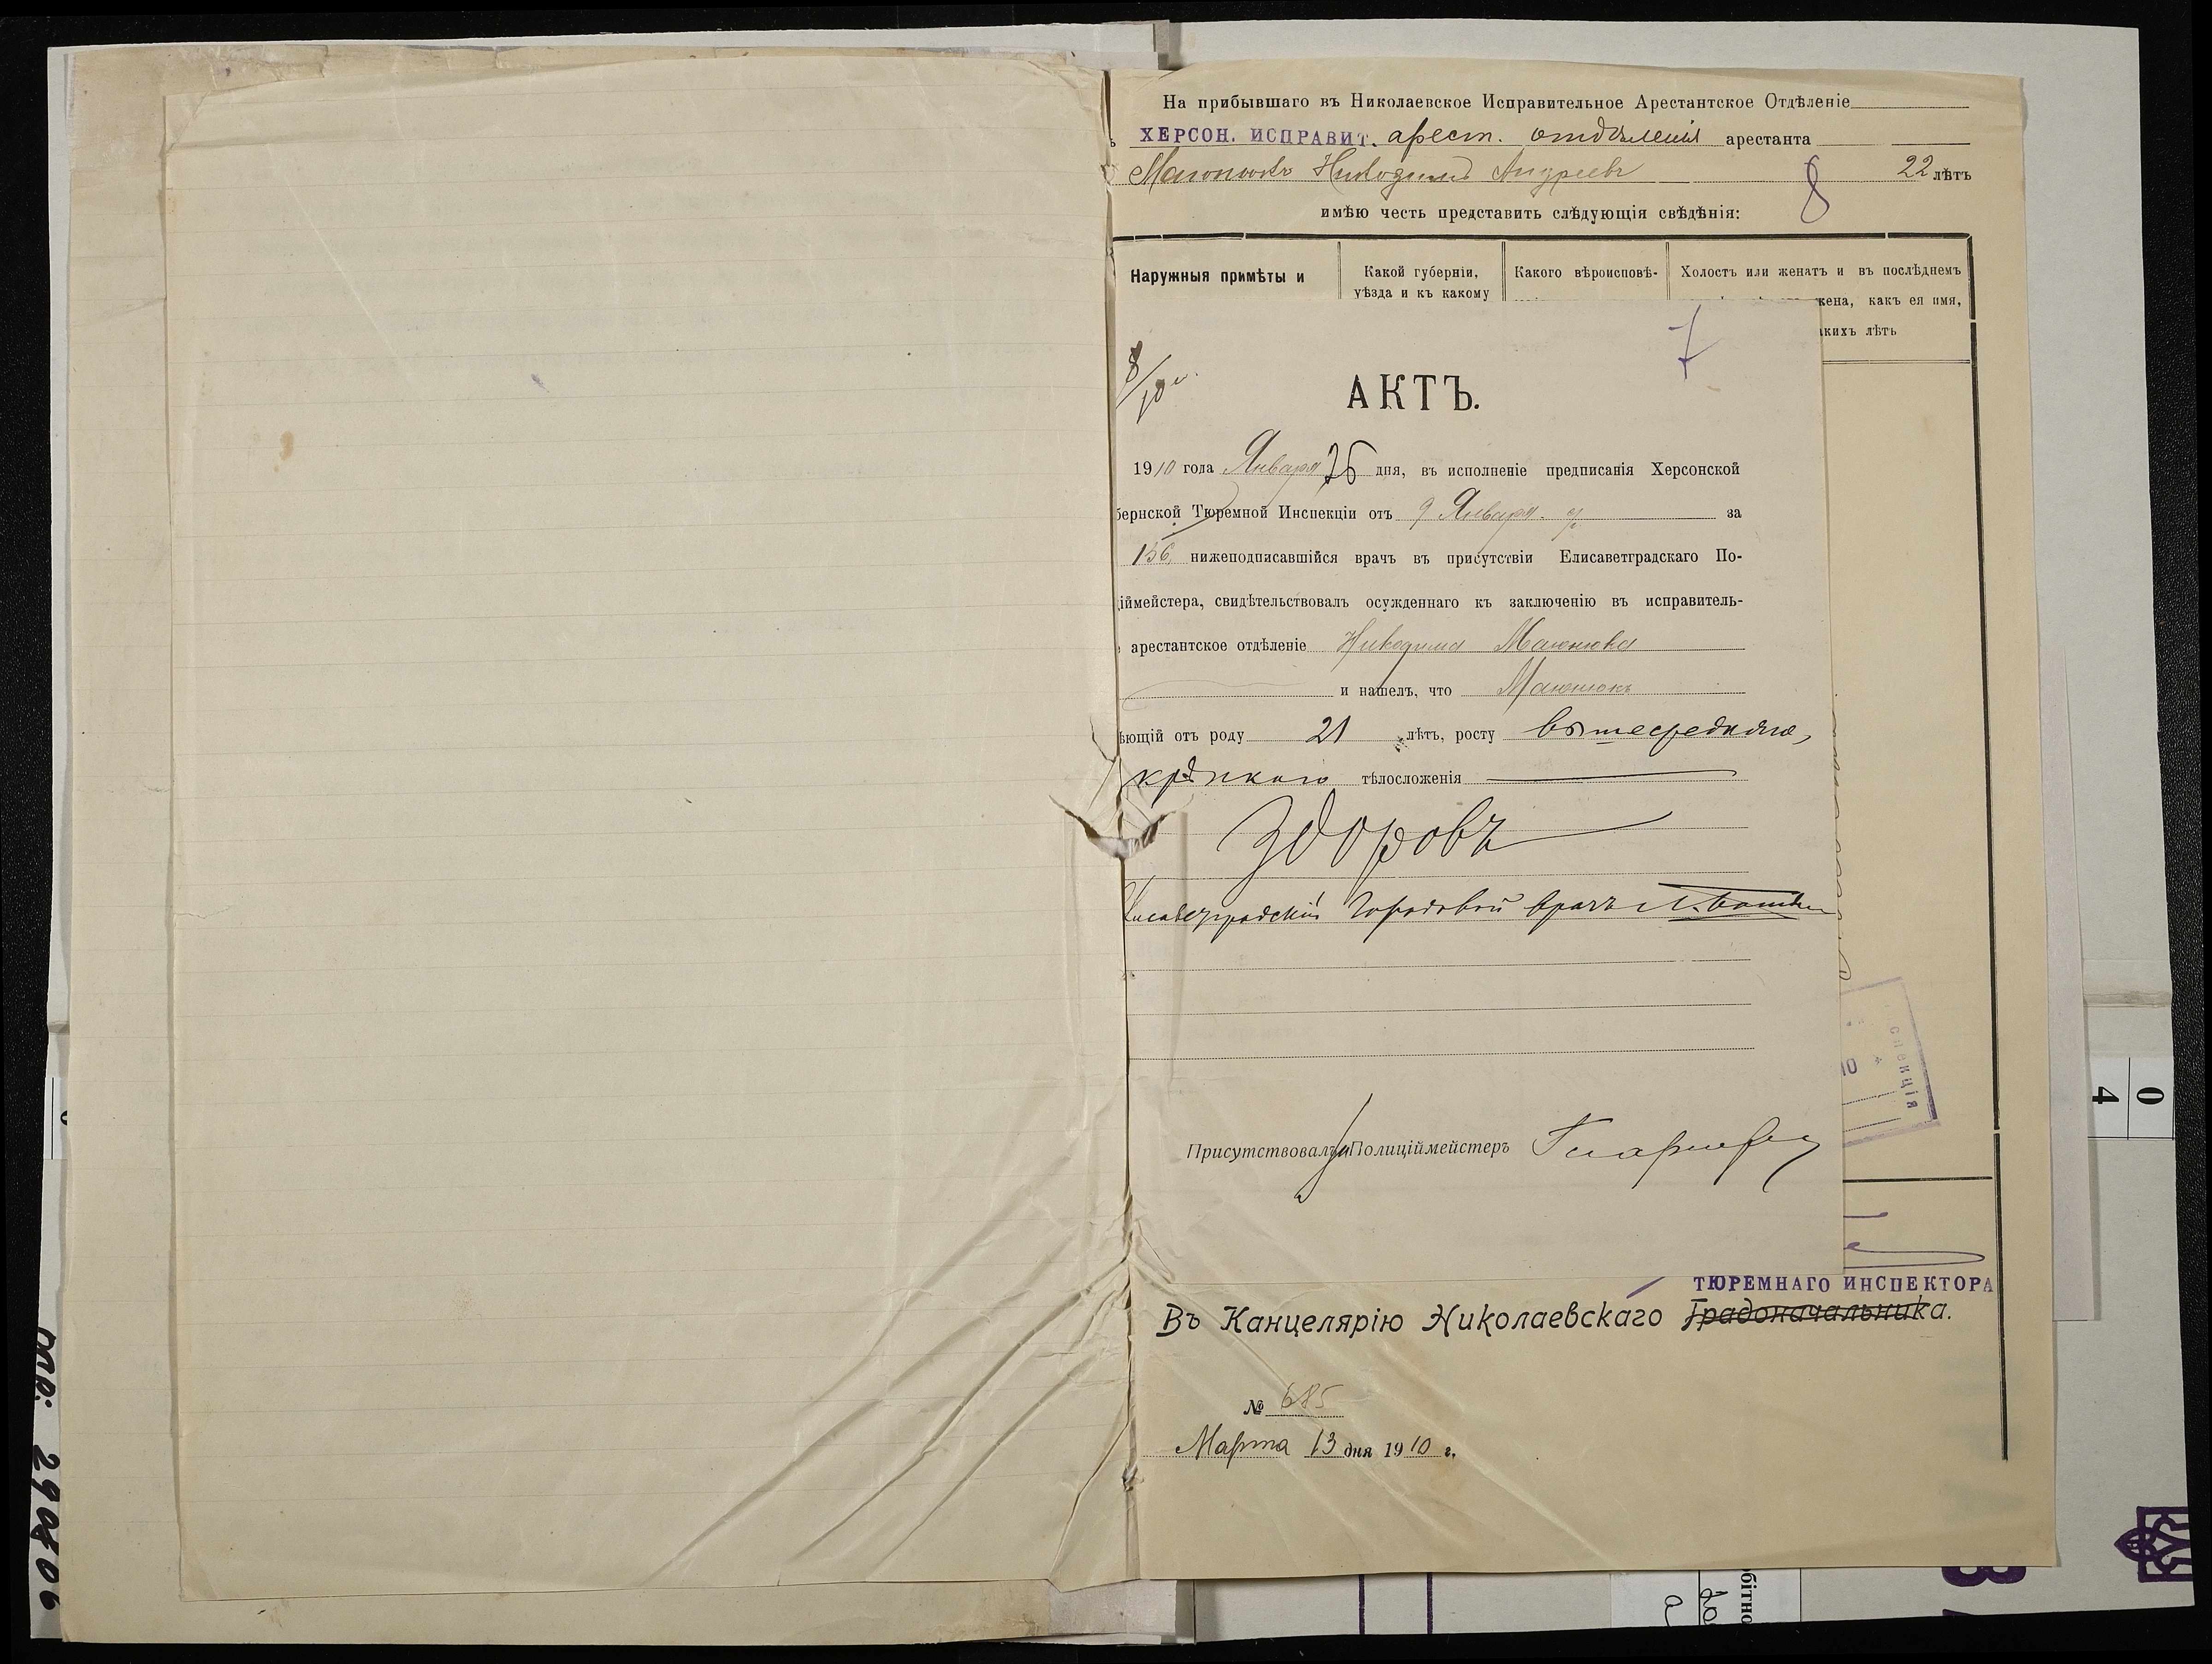 На прибывшаго въ Николаевское Исправительное Арестантское Отдѣленіе
ХЕРСОН. ИСПРАВИТ. арест. отдѣленія арестанта
Маюнюкъ Никодимъ Андреевъ 22 лѣтъ
8
имѣю честь представить слѣдующія свѣдѣнія:
Наружныя примѣты и
Какой губерніи,
уѣзда и къ какому
Какого вѣроисповѣ-
Холостъ или женатъ и въ послѣднемъ
жена, какъ ея имя,
акихъ лѣтъ
7
8/10
АКТЪ.
1910 года Января 26 дня, въ исполненіе предписанія Херсонской
бернской Тюремной Инспекціи отъ 9 Января за
136, нижеподписавшійся врачъ въ присутствіи Елисаветградскаго По-
ціймейстера, свидѣтельствовалъ осужденнаго къ заключенію въ исправитель-
арестантское отдѣленіе Никодима Маюнюка
и нашелъ, что Маюнюкъ
ѣющій отъ роду 21 лѣтъ, росту вышесредняго,
крѣпкаго тѣлосложенія
Здоровъ
Елисаветградскій Городовой врачъ
спекція
10
Присутствовалъ Полиціймейстеръ
ТЮРЕМНАГО ИНСПЕКТОРА
Въ Канцелярію Николаевскаго Градоначальника.
№ 685
Марта 13 дня 1910 г.
0
4
290706